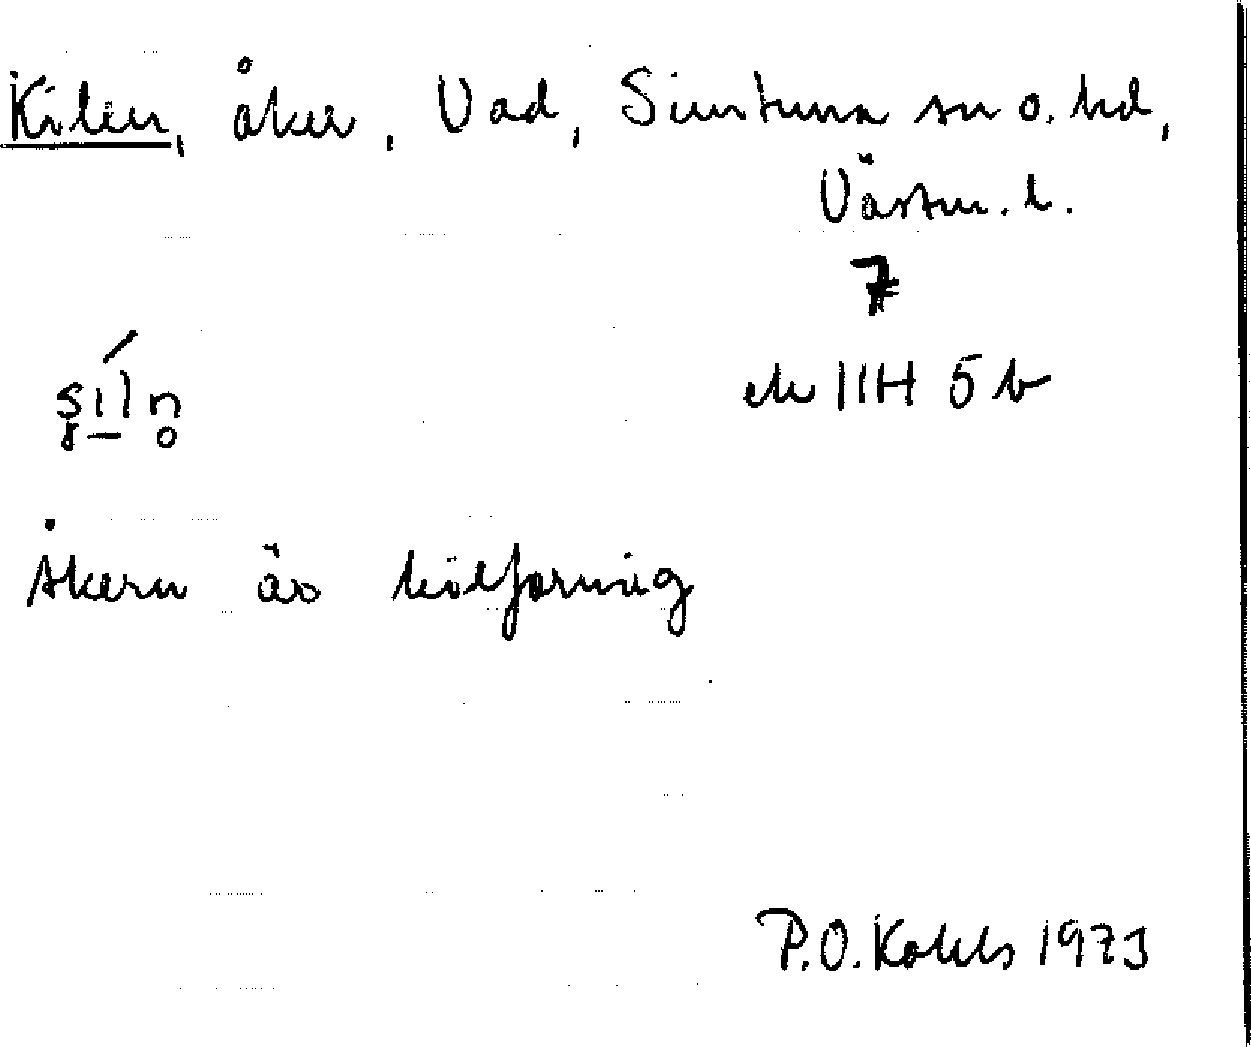 Kilen, åker, Vad, Simtuna sn o. hd,
Västm. l.
7
ek 11H 5b
Åkern är kilformig
P.O. Kohls 1973